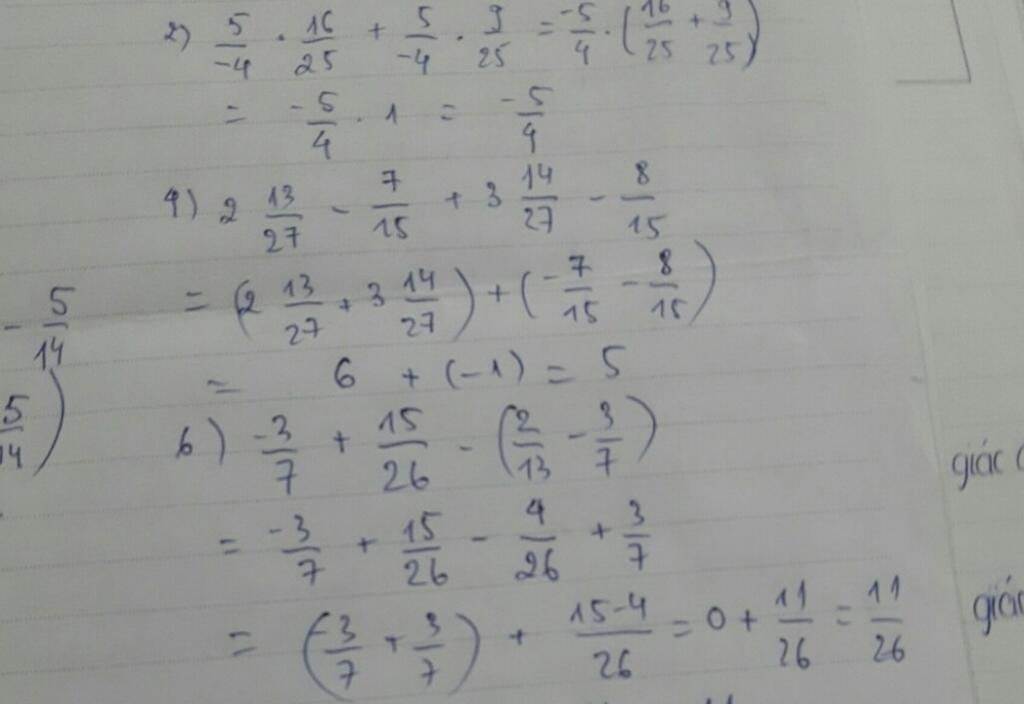 2) 5/-4 . 16/25 + 5/-4 . 9/25 = -5/4 . (16/25 + 9/25)
= -5/4 . 1 = -5/4
4) 2 13/27 - 7/15 + 3 14/27 - 8/15
- 5/14
= (2 13/27 + 3 14/27) + (-7/15 - 8/15)
= 6 + (-1) = 5
5/14)
6) -3/7 + 15/26 - (2/13 - 3/7)
giác
= -3/7 + 15/26 - 4/26 + 3/7
= (-3/7 + 3/7) + 15-4/26 = 0 + 11/26 = 11/26
giác